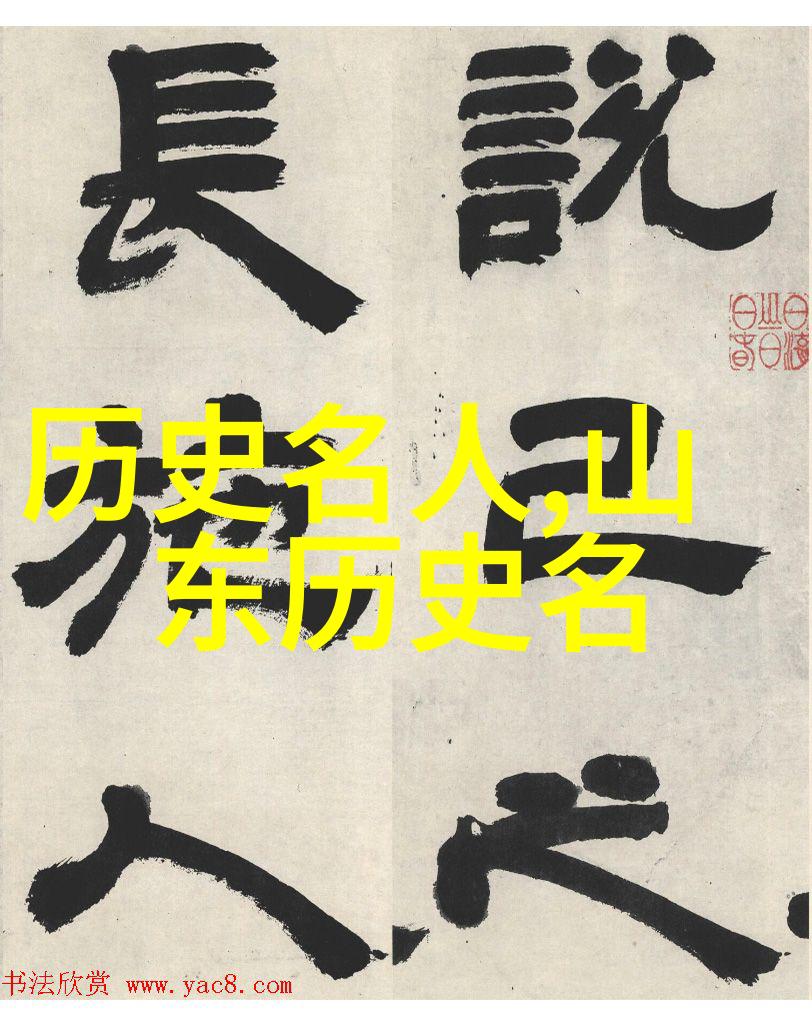 說己之
長施人
历史名人,山
东历史名
书法欣赏 www.yac8.com